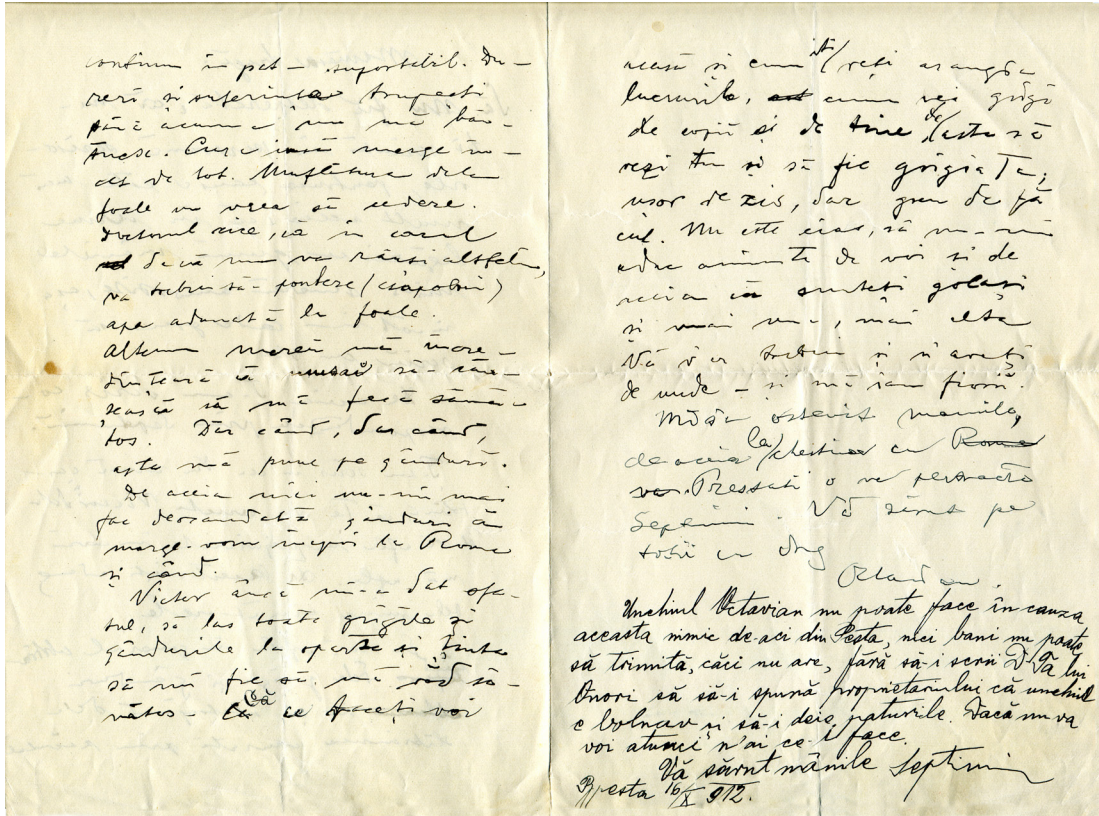 continuu în pat – suportabil. Du–
reri și suferințe trupești
până acuma nu mă băn–
tuesc. Cura însă merge în–
cet de tot. Umflătura dela
foale nu vrea să cedere.
Doctorul zice, că în cazul
dacă nu va reuși altfelu,
va trebui să-
apa adunată la foale.
Altcum mereu mă încre–
dințează că să-
să mă facă sănă–
tos. Dar când, dar când,
asta mă pune pe gânduri.
De aceia nici nu-mi mai
fac deocamdată gânduri că
merge-vom înapoi la Roma
și când.
Victor încă mi-a dat sfa–
tul, să las toate grigile și
gândurile la oparte și ținta
să mi fie să mă văd să–
nătos – Că ce faceți voi
acasă și cum îți veți aranja
lucrurile, cum vei griji
de copii și de tine de asta să
vezi tu și să fie grigia Ta;
usor de zis, dar greu de fă
cut. Nu este cias, să nu-mi
aduc aminte de voi și de
aceia că sunteți golași
și mai una, mai alta
Vă v'a trebui și n'aveți
de unde – și mă iau fiori.
Mi s'a ostenit manila,
de aceia la chestia cu Roma
Pressati o va pertracta
Septimiu. Vă sărut pe
toții cu drag
Octavian.
Unchiul Octavian nu poate face în cauza
aceasta nimic de-aci din Pesta, nici bani nu poate
să trimită, căci nu are, fără să-i scrii D-Ta lui
Onori să să-i spună proprietarului că unchiul
e bolnav și să-i deie paturile. Dacă nu va
voi atunci n'ai ce-i face.
Vă sărut mânile Septimiu
Bpesta 16/X 912.